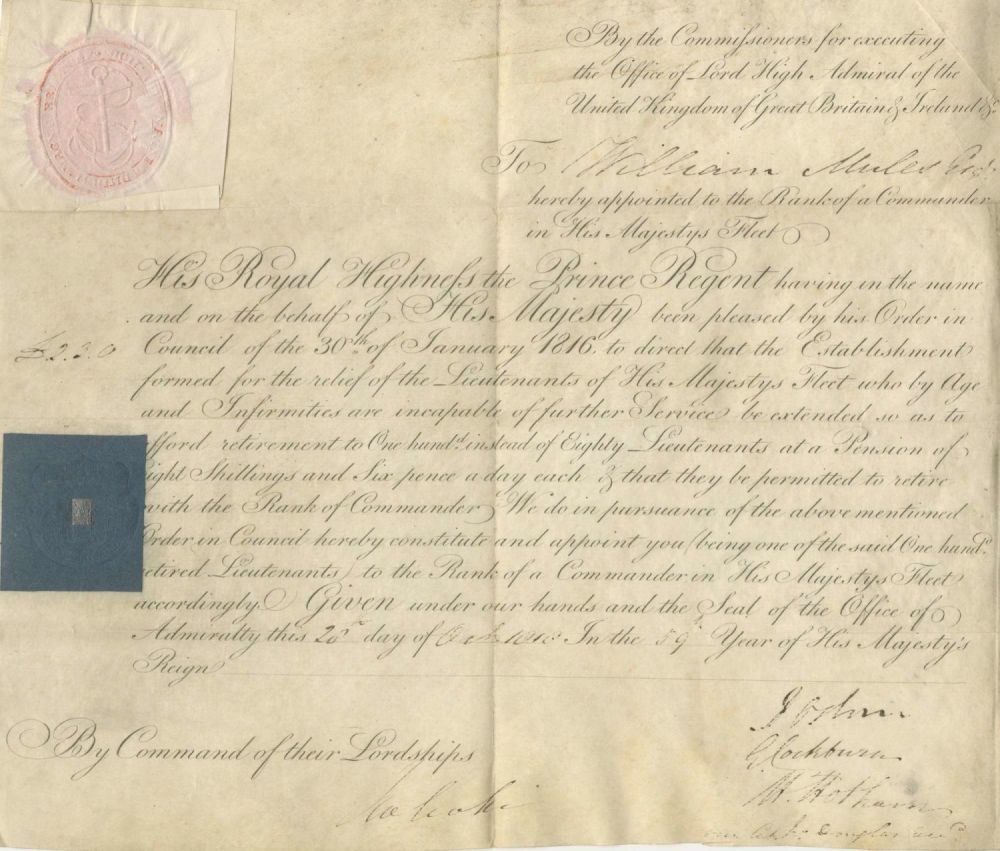 By the Commissioners for executing
the Office of Lord High Admiral of the
United Kingdom of Great Britain & Ireland &c.
To William Mules Esqr.
hereby appointed to the Rank of a Commander
in His Majestys Fleet
His Royal Highness the Prince Regent having in the name
and on the behalf of His Majesty been pleased by his Order in
£2.3.0
Council of the 30th of January 1816, to direct that the Establishment
formed for the relief of the Lieutenants of His Majestys Fleet who by Age
and Infirmities are incapable of further Service be extended so as to
afford retirement to One hundd. instead of Eighty Lieutenants at a Pension of
Eight Shillings and Six pence a day each & that they be permitted to retire
with the Rank of Commander We do in pursuance of the above mentioned
Order in Council hereby constitute and appoint you (being one of the said One hundd.
retired Lieutenants) to the Rank of a Commander in His Majestys Fleet
accordingly. Given under our hands and the Seal of the Office of
Admiralty this day of In the 59 Year of His Majesty's
Reign
G Cockburn
H. Hotham
By Command of their Lordships